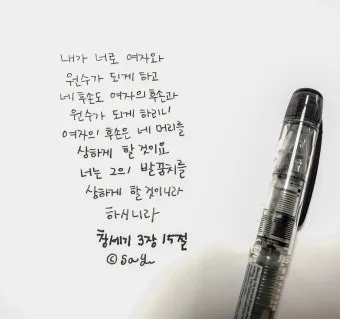 내가 너로 여자와
원수가 되게 하고
네 후손도 여자의 후손과
원수가 되게 하리니
여자의 후손은 네 머리를
상하게 할 것이요
너는 그의 발꿈치를
상하게 할 것이니라
하시니라
창세기 3장 15절